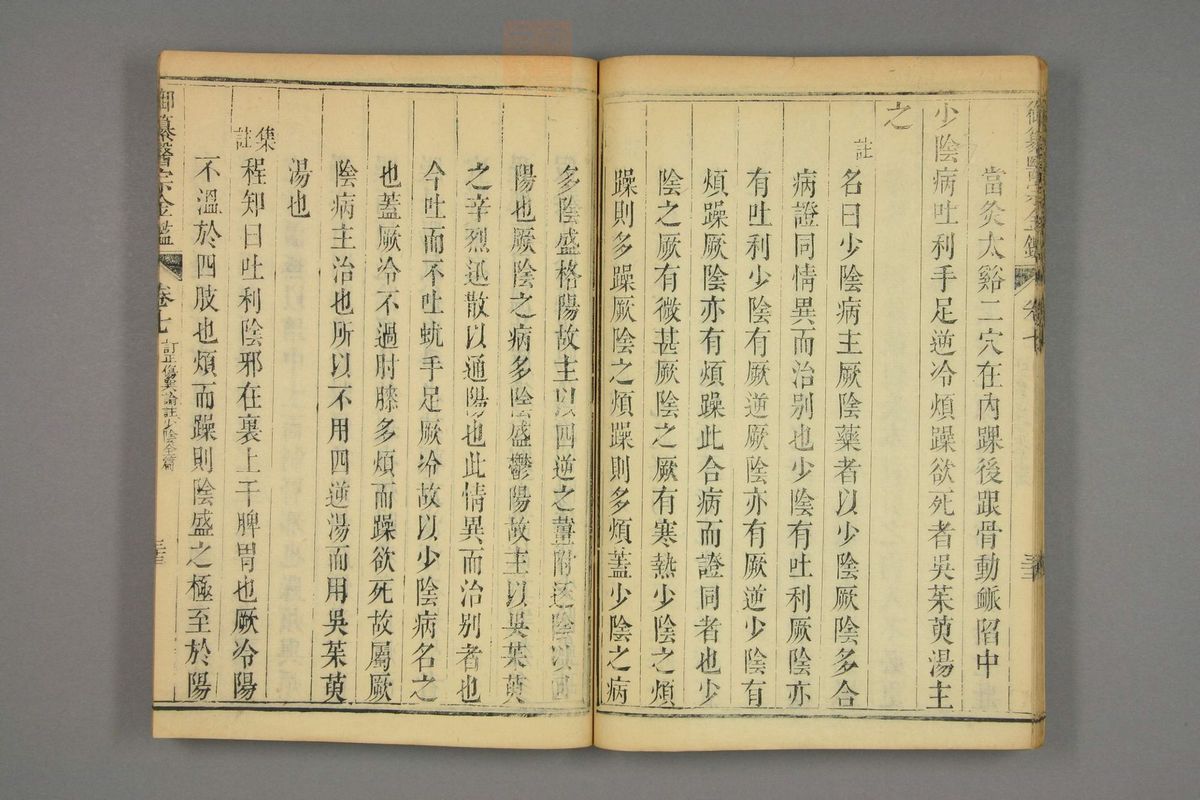 御纂醫宗金鑑 卷七
當灸太谿二穴在內踝後跟骨動脈陷中
少陰病吐利手足逆冷煩躁欲死者吳茱萸湯主
之
註
名曰少陰病主厥陰藥者以少陰厥陰多合
病證同情異而治别也少陰有吐利厥陰亦
有吐利少陰有厥逆厥陰亦有厥逆少陰有
煩躁厥陰亦有煩躁此合病而證同者也少
陰之厥有微甚厥陰之厥有寒熱少陰之煩
躁則多躁厥陰之煩躁則多煩蓋少陰之病
多陰盛格陽故主以四逆之薑附逐陰
陽也厥陰之病多陰盛鬱陽故主以吳茱萸
之辛烈迅散以通陽也此情異而治别者也
今吐而不吐蚘手足厥冷故以少陰病名之
也蓋厥冷不過肘膝多煩而躁欲死故屬厥
陰病主治也所以不用四逆湯而用吳茱萸
湯也
集註
程知曰吐利陰邪在裏上干脾胃也厥冷陽
不溫於四肢也煩而躁則陰盛之極至於陽
御纂醫宗金鑑 卷七 訂正傷寒論註少陰全篇